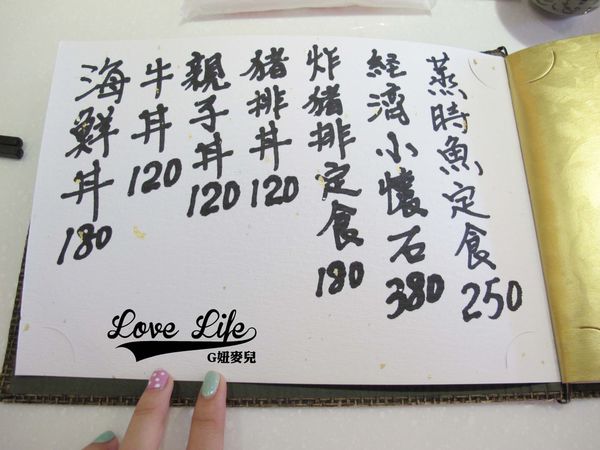 蒸時魚定食250
経濟小懷石380
炸豬排定食180
豬排丼120
親子丼120
牛丼120
海鮮丼180
Love Life
G妞麥兒